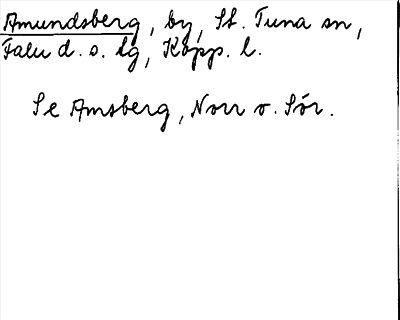 Amundsberg, by, St. Tuna sn,
Falu d. s. lg, Kopp. l.
Se Amsberg, Norr o. Sör.